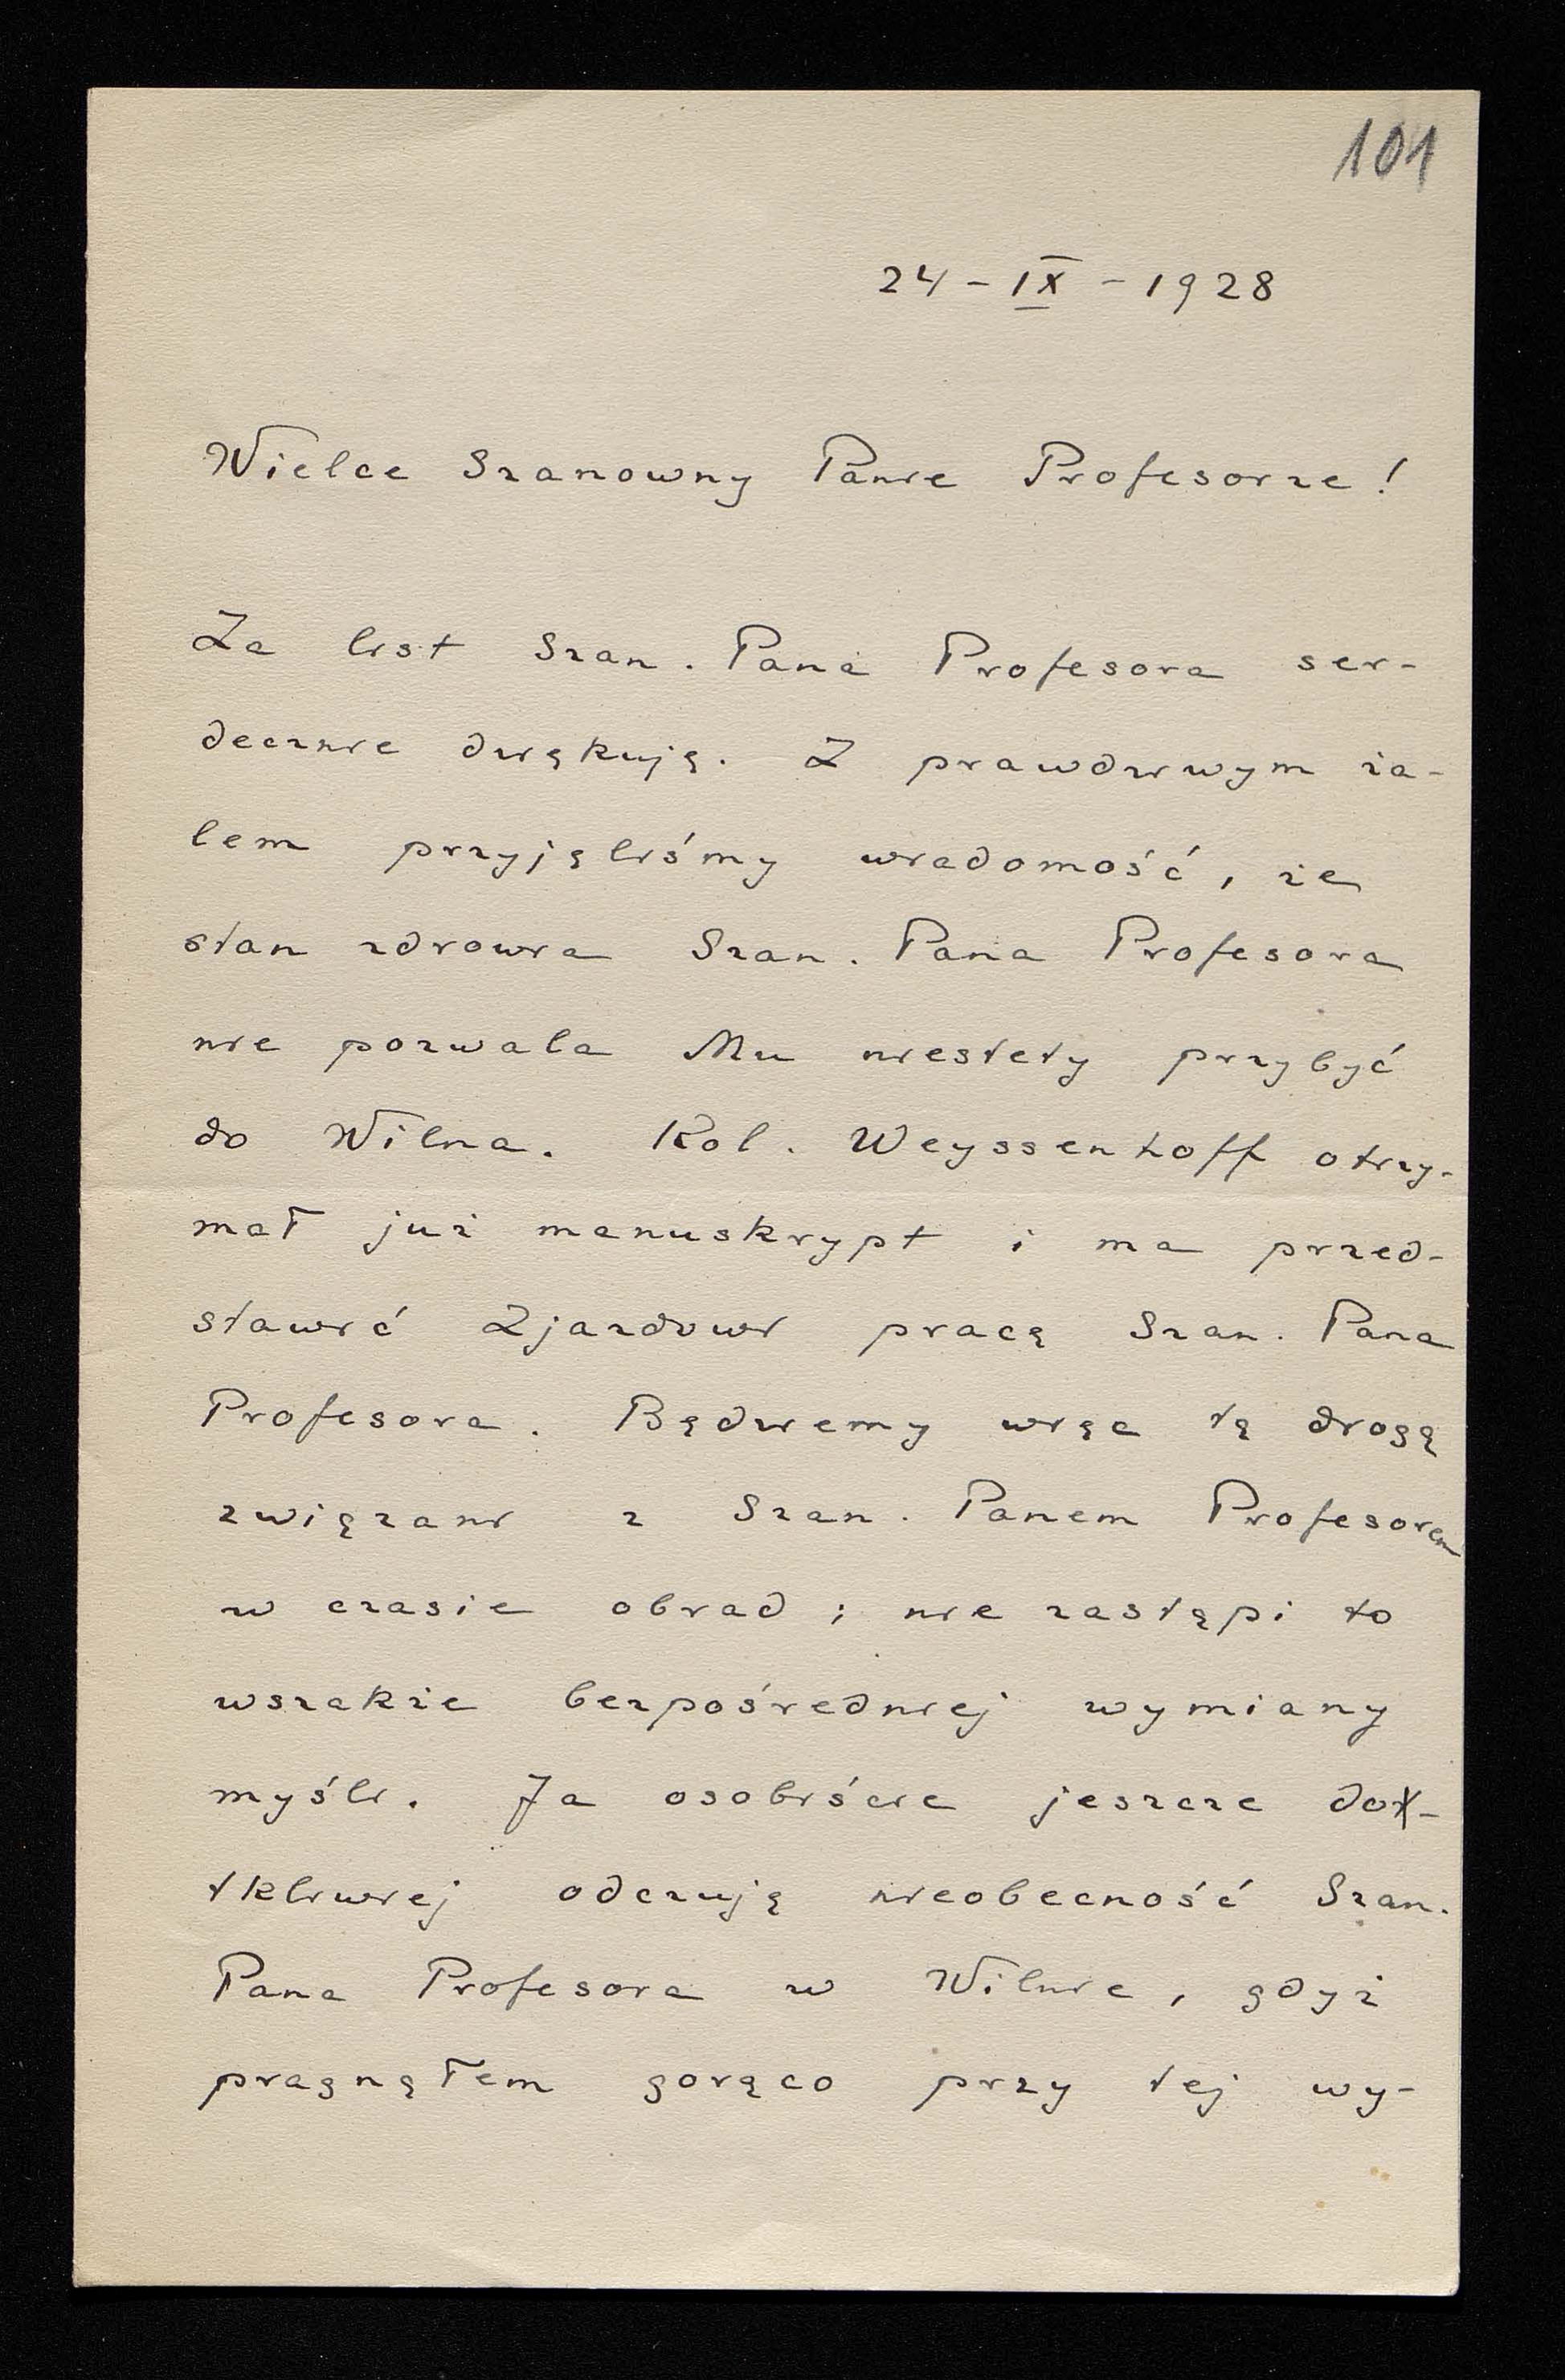 101
24-IX-1928
Wielce Szanowny Panie Profesorze!
Za list Szan. Pana Profesora ser-
decznie dziękuję. Z prawdziwym ża-
lem przyjęliśmy wiadomość, że
stan zdrowia Szan. Pana Profesora
nie pozwala Mu niestety przybyć
do Wilna. Kol. Weyssenhoff otrzy-
mał już manuskrypt i ma przed-
stawić Zjazdowi pracę Szan. Pana
Profesora. Będziemy więc tą drogą
związani z Szan. Panem Profesorem
w czasie obrad; nie zastąpi to
wszakże bezpośredniej wymiany
myśli. Ja osobiście jeszcze do-
tkliwiej odczuję nieobecność Szan.
Pana Profesora w Wilnie, gdyż
pragnąłem gorąco przy tej wy-